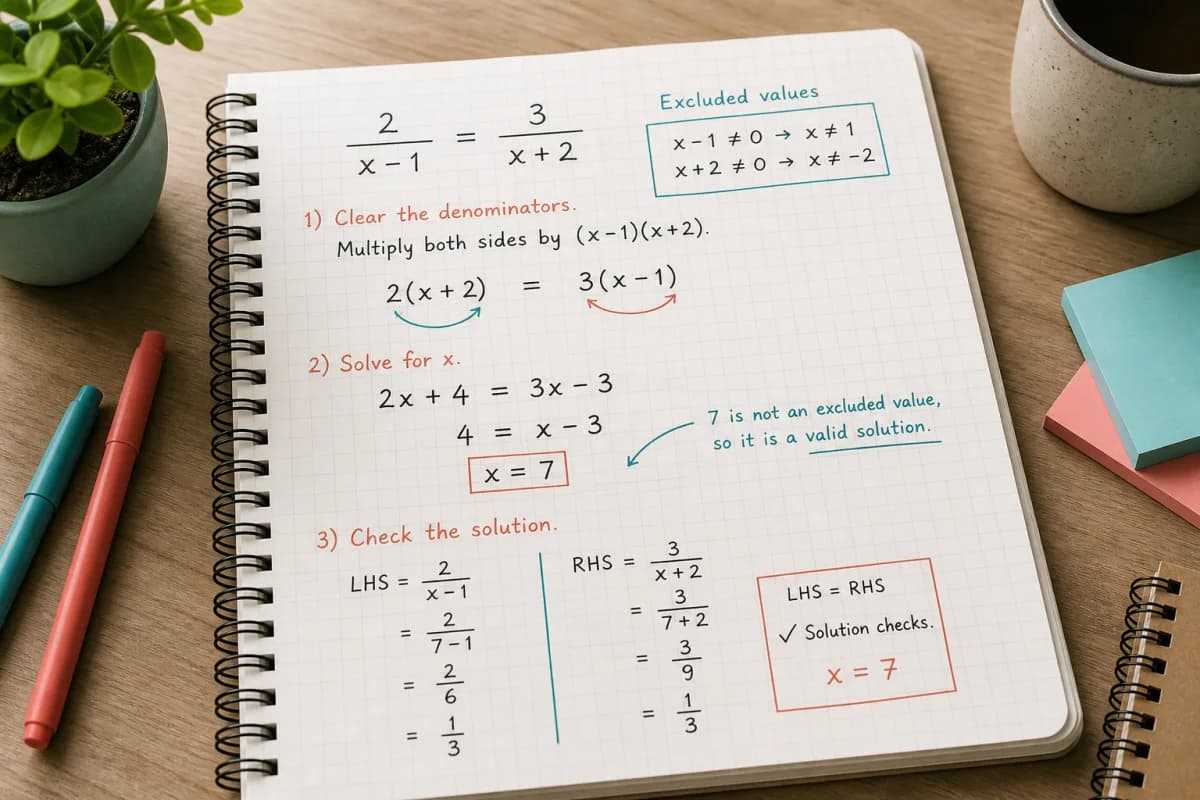 2/(x − 1) = 3/(x + 2)
Excluded values
x − 1 ≠ 0 → x ≠ 1
x + 2 ≠ 0 → x ≠ −2
1) Clear the denominators.
Multiply both sides by (x − 1)(x + 2).
2(x + 2) = 3(x − 1)
2) Solve for x.
2x + 4 = 3x − 3
4 = x − 3
x = 7
7 is not an excluded value,
so it is a valid solution.
3) Check the solution.
LHS = 2/(x − 1)
= 2/(7 − 1)
= 2/6
= 1/3
RHS = 3/(x + 2)
= 3/(7 + 2)
= 3/9
= 1/3
LHS = RHS
✓ Solution checks.
x = 7